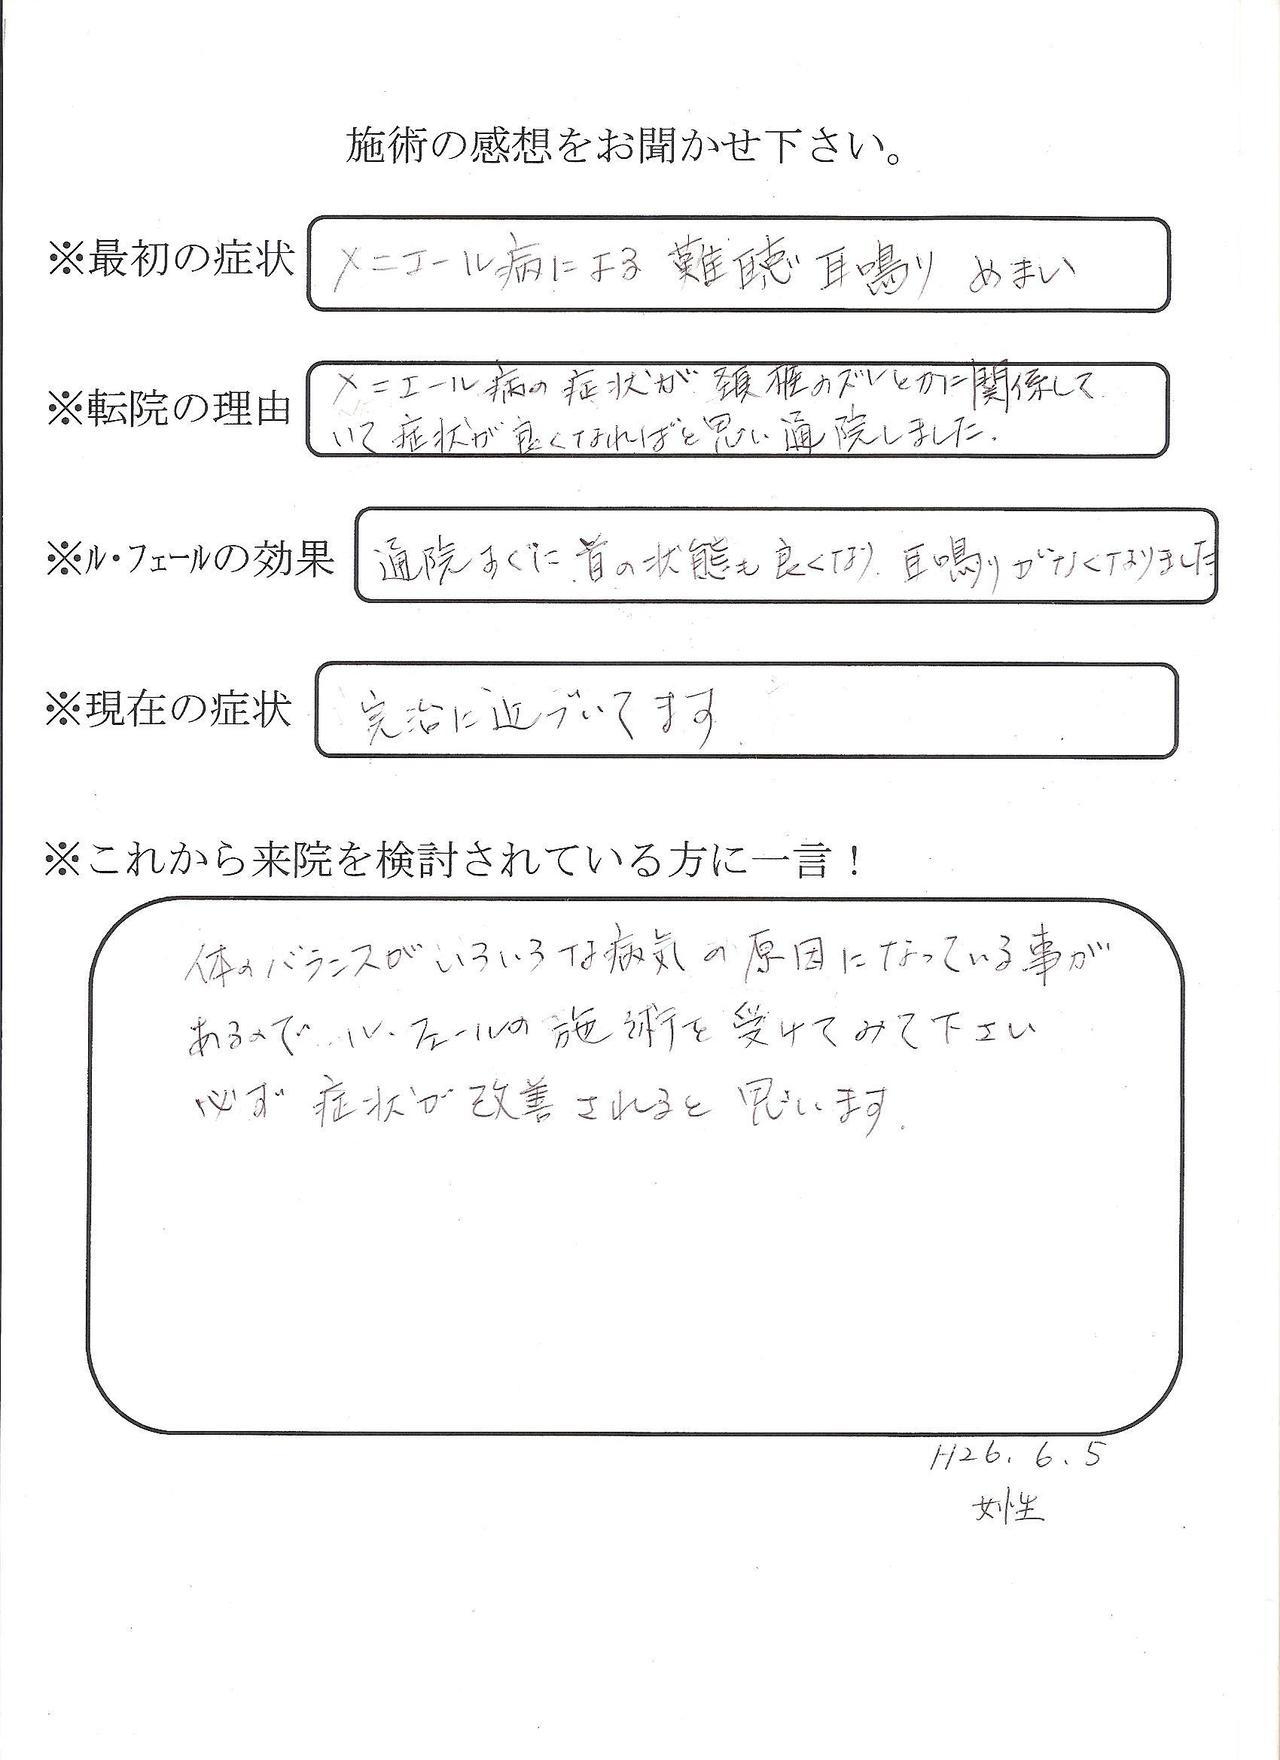 施術の感想をお聞かせ下さい。
※最初の症状 メニエール病による 難聴 耳鳴り めまい
※転院の理由 メニエール病の症状が 頚椎のズレとかに関係して
いて 症状が良くなればと思い通院しました.
※ル・フェールの効果 通院すぐに 首の状態も良くなり. 耳鳴りがなくなりました
※現在の症状 完治に近づいてます.
※これから来院を検討されている方に一言！
体のバランスがいろいろな病気の原因になっている事が
あるので ル・フェールの施術を受けてみて下さい
必ず 症状が改善されると思います.
H26.6.5
女性